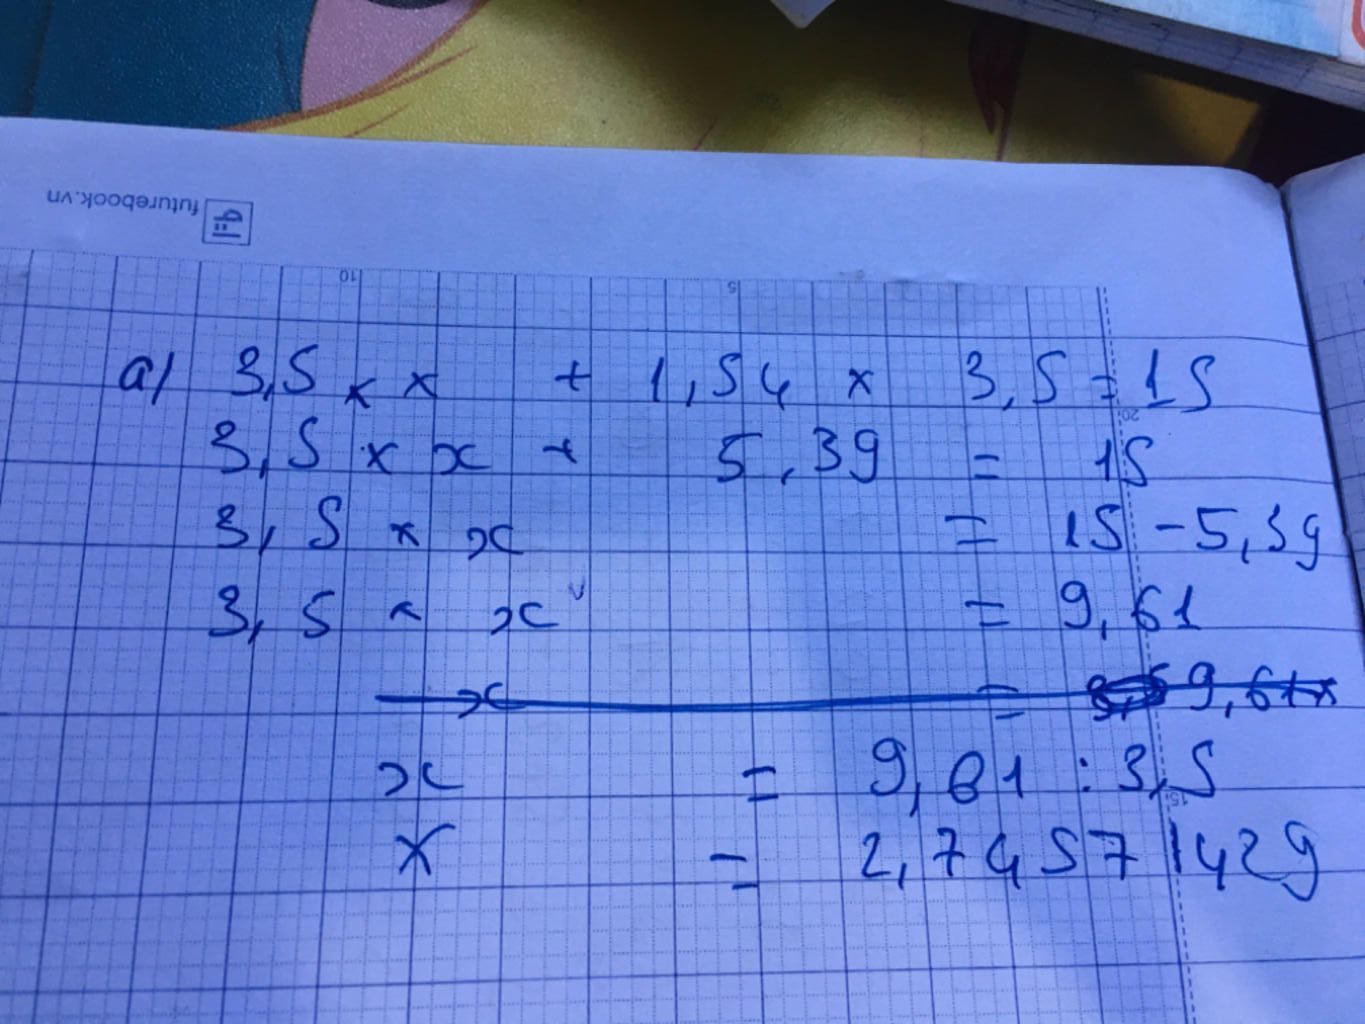 futurebook.vn
10
5
a) 3,5 x x + 1,54 x 3,5 = 15
20
3,5 x x + 5,39 = 15
3,5 x x = 15 - 5,39
3,5 x x = 9,61
x = 9,61 x
x = 9,61 : 3,5
15
x = 2,74571429